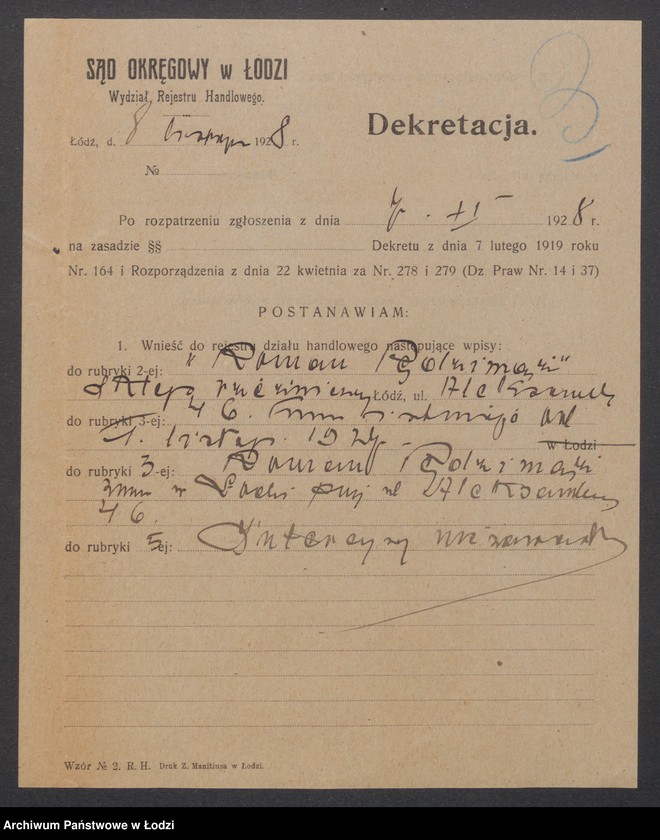 SĄD OKRĘGOWY w ŁODZI
Wydział Rejestru Handlowego.
Łódź, d. 8 listopada 1928 r.
Dekretacja.
№
Po rozpatrzeniu zgłoszenia z dnia 7. XI 1928 r.
na zasadzie §§ Dekretu z dnia 7 lutego 1919 roku
Nr. 164 i Rozporządzenia z dnia 22 kwietnia za Nr. 278 i 279 (Dz Praw Nr. 14 i 37)
POSTANAWIAM:
1. Wnieść do rejestru działu handlowego następujące wpisy:
do rubryki 2-ej: "Roman
Sklep Łódź, ul.
do rubryki 3-ej: 46. od
1. listop. w Łodzi
do rubryki 3-ej: Roman
zam. w Łodzi przy ul
46.
do rubryki 5ej: Intercyzy nie zawarł
Wzór № 2. R. H. Druk Z. Manitiusa w Łodzi.
Archiwum Państwowe w Łodzi